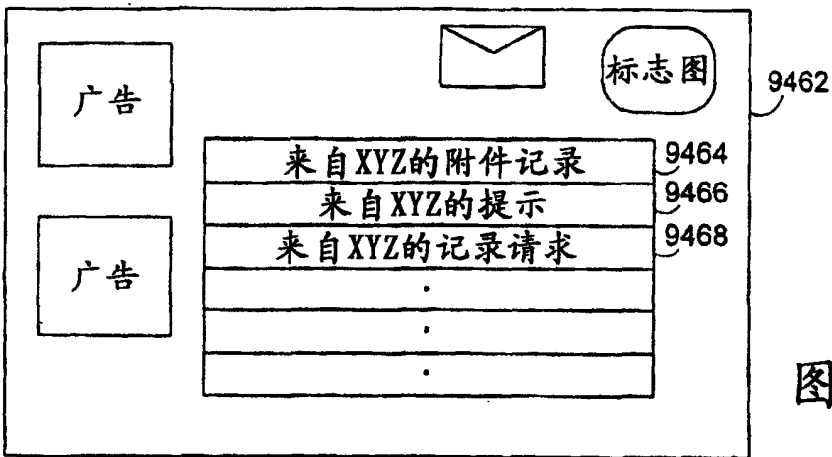 广告
标志图
9462
来自XYZ的附件记录
9464
来自XYZ的提示
9466
来自XYZ的记录请求
9468
广告
·
·
·
图